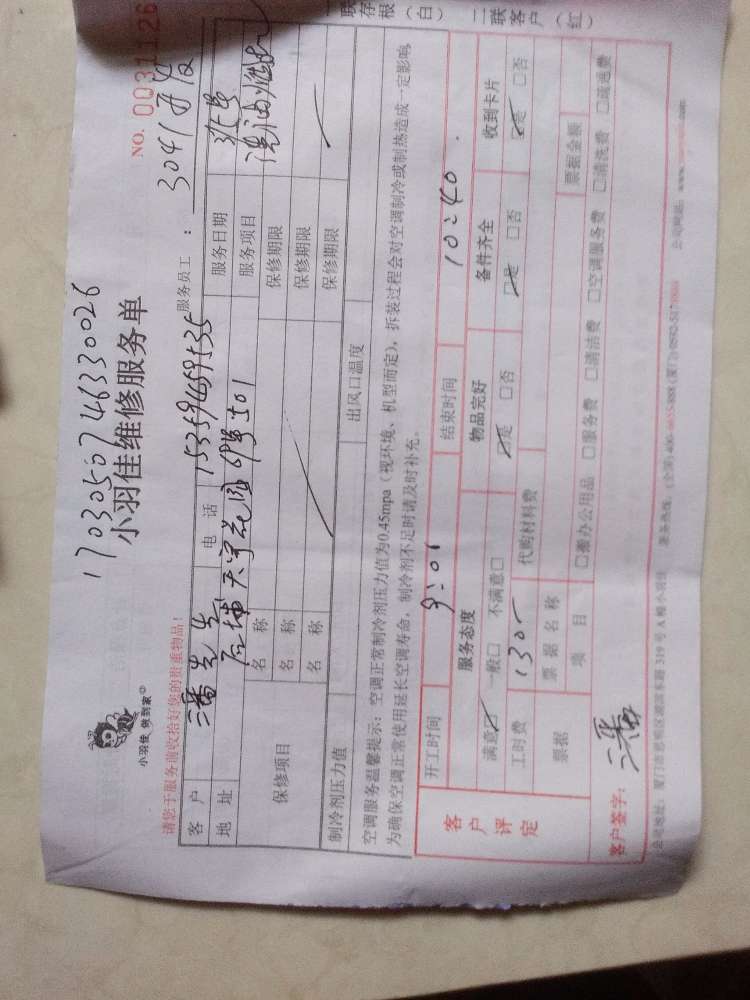 1703050746330026
小羽佳维修服务单
NO. 0031126
小羽佳 做到家
请您于服务前收拾好您的贵重物品!
服务员工:
3041
客户 潘先生 电话 15359459535 服务日期
地址 后埔 501 服务项目
保修项目 名称 保修期限
名称 保修期限
名称 保修期限
制冷剂压力值 出风口温度
空调服务温馨提示:空调正常制冷剂压力值为0.45mpa(视环境、机型而定),拆装过程会对空调制冷或制热造成一定影响
为确保空调正常使用延长空调寿命,制冷剂不足时请及时补充。
开工时间 9:01 结束时间 10:40
客户评定
服务态度 物品完好 备件齐全 收到卡片
满意☑ 一般□ 不满意□ ☑是 □否 ☑是 □否 ☑是 □否
工时费 130 代购材料费
票据 票据名称 票据金额
项目 □搬办公用品 □服务费 □清洁费 □空调服务费 □清洗费 □疏通费
客户签字: 潘
一联存根(白) 二联客户(红)